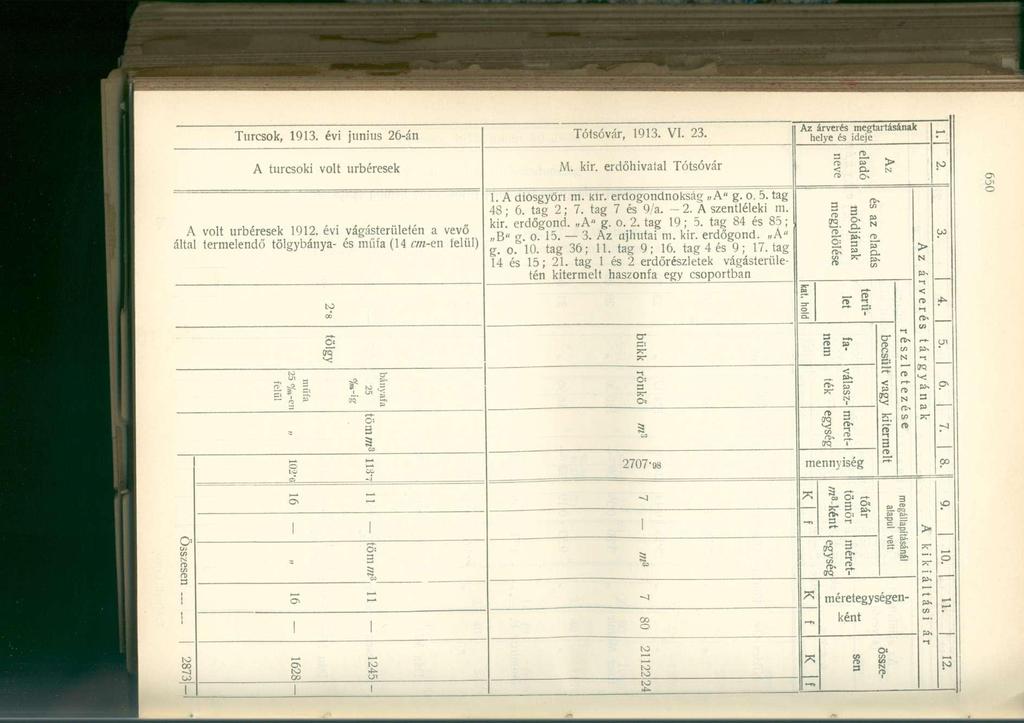 650
1. | 2. | 3. | 4. | 5. | 6. | 7. | 8. | 9. | 10. | 11. | 12.
Az árverés megtartásának
helye és ideje
Az
eladó
neve
Az árverés tárgyának
és az eladás
módjának
megjelölése
részletezése
terü-
let
kat. hold
becsült vagy kitermelt
fa-
nem
válasz-
ték
méret-
egység
mennyiség
A kikiáltási ár
megállapításánál
alapul vett
tőár
tömör
m³-ként
K | f
méret-
egység
méretegységen-
ként
K | f
össze-
sen
K | f
Tótsóvár, 1913. VI. 23.
M. kir. erdőhivatal Tótsóvár
1. A diósgyőri m. kir. erdőgondnokság „A" g. o. 5. tag
48; 6. tag 2; 7. tag 7 és 9/a. — 2. A szentléleki m.
kir. erdőgond. „A" g. o. 2. tag 19; 5. tag 84 és 85;
„B" g. o. 15. — 3. Az ujhutai m. kir. erdőgond. „A"
g. o. 10. tag 36; 11. tag 9; 16. tag 4 és 9; 17. tag
14 és 15; 21. tag 1 és 2 erdőrészletek vágásterüle-
tén kitermelt haszonfa egy csoportban
bükk rönkő m³ 2707·98 7 — m³ 7 80 21122 24
Turcsok, 1913. évi junius 26-án
A turcsoki volt urbéresek
A volt urbéresek 1912. évi vágásterületén a vevő
által termelendő tölgybánya- és műfa (14 cm-en felül)
2·8 tölgy
bányafa
25
%-ig
töm m³ 113·7 11 — töm m³ 11 — 1245 —
műfa
25 %-en
felül
„ 102·6 16 — „ 16 — 1628 —
Összesen — — 2873 —